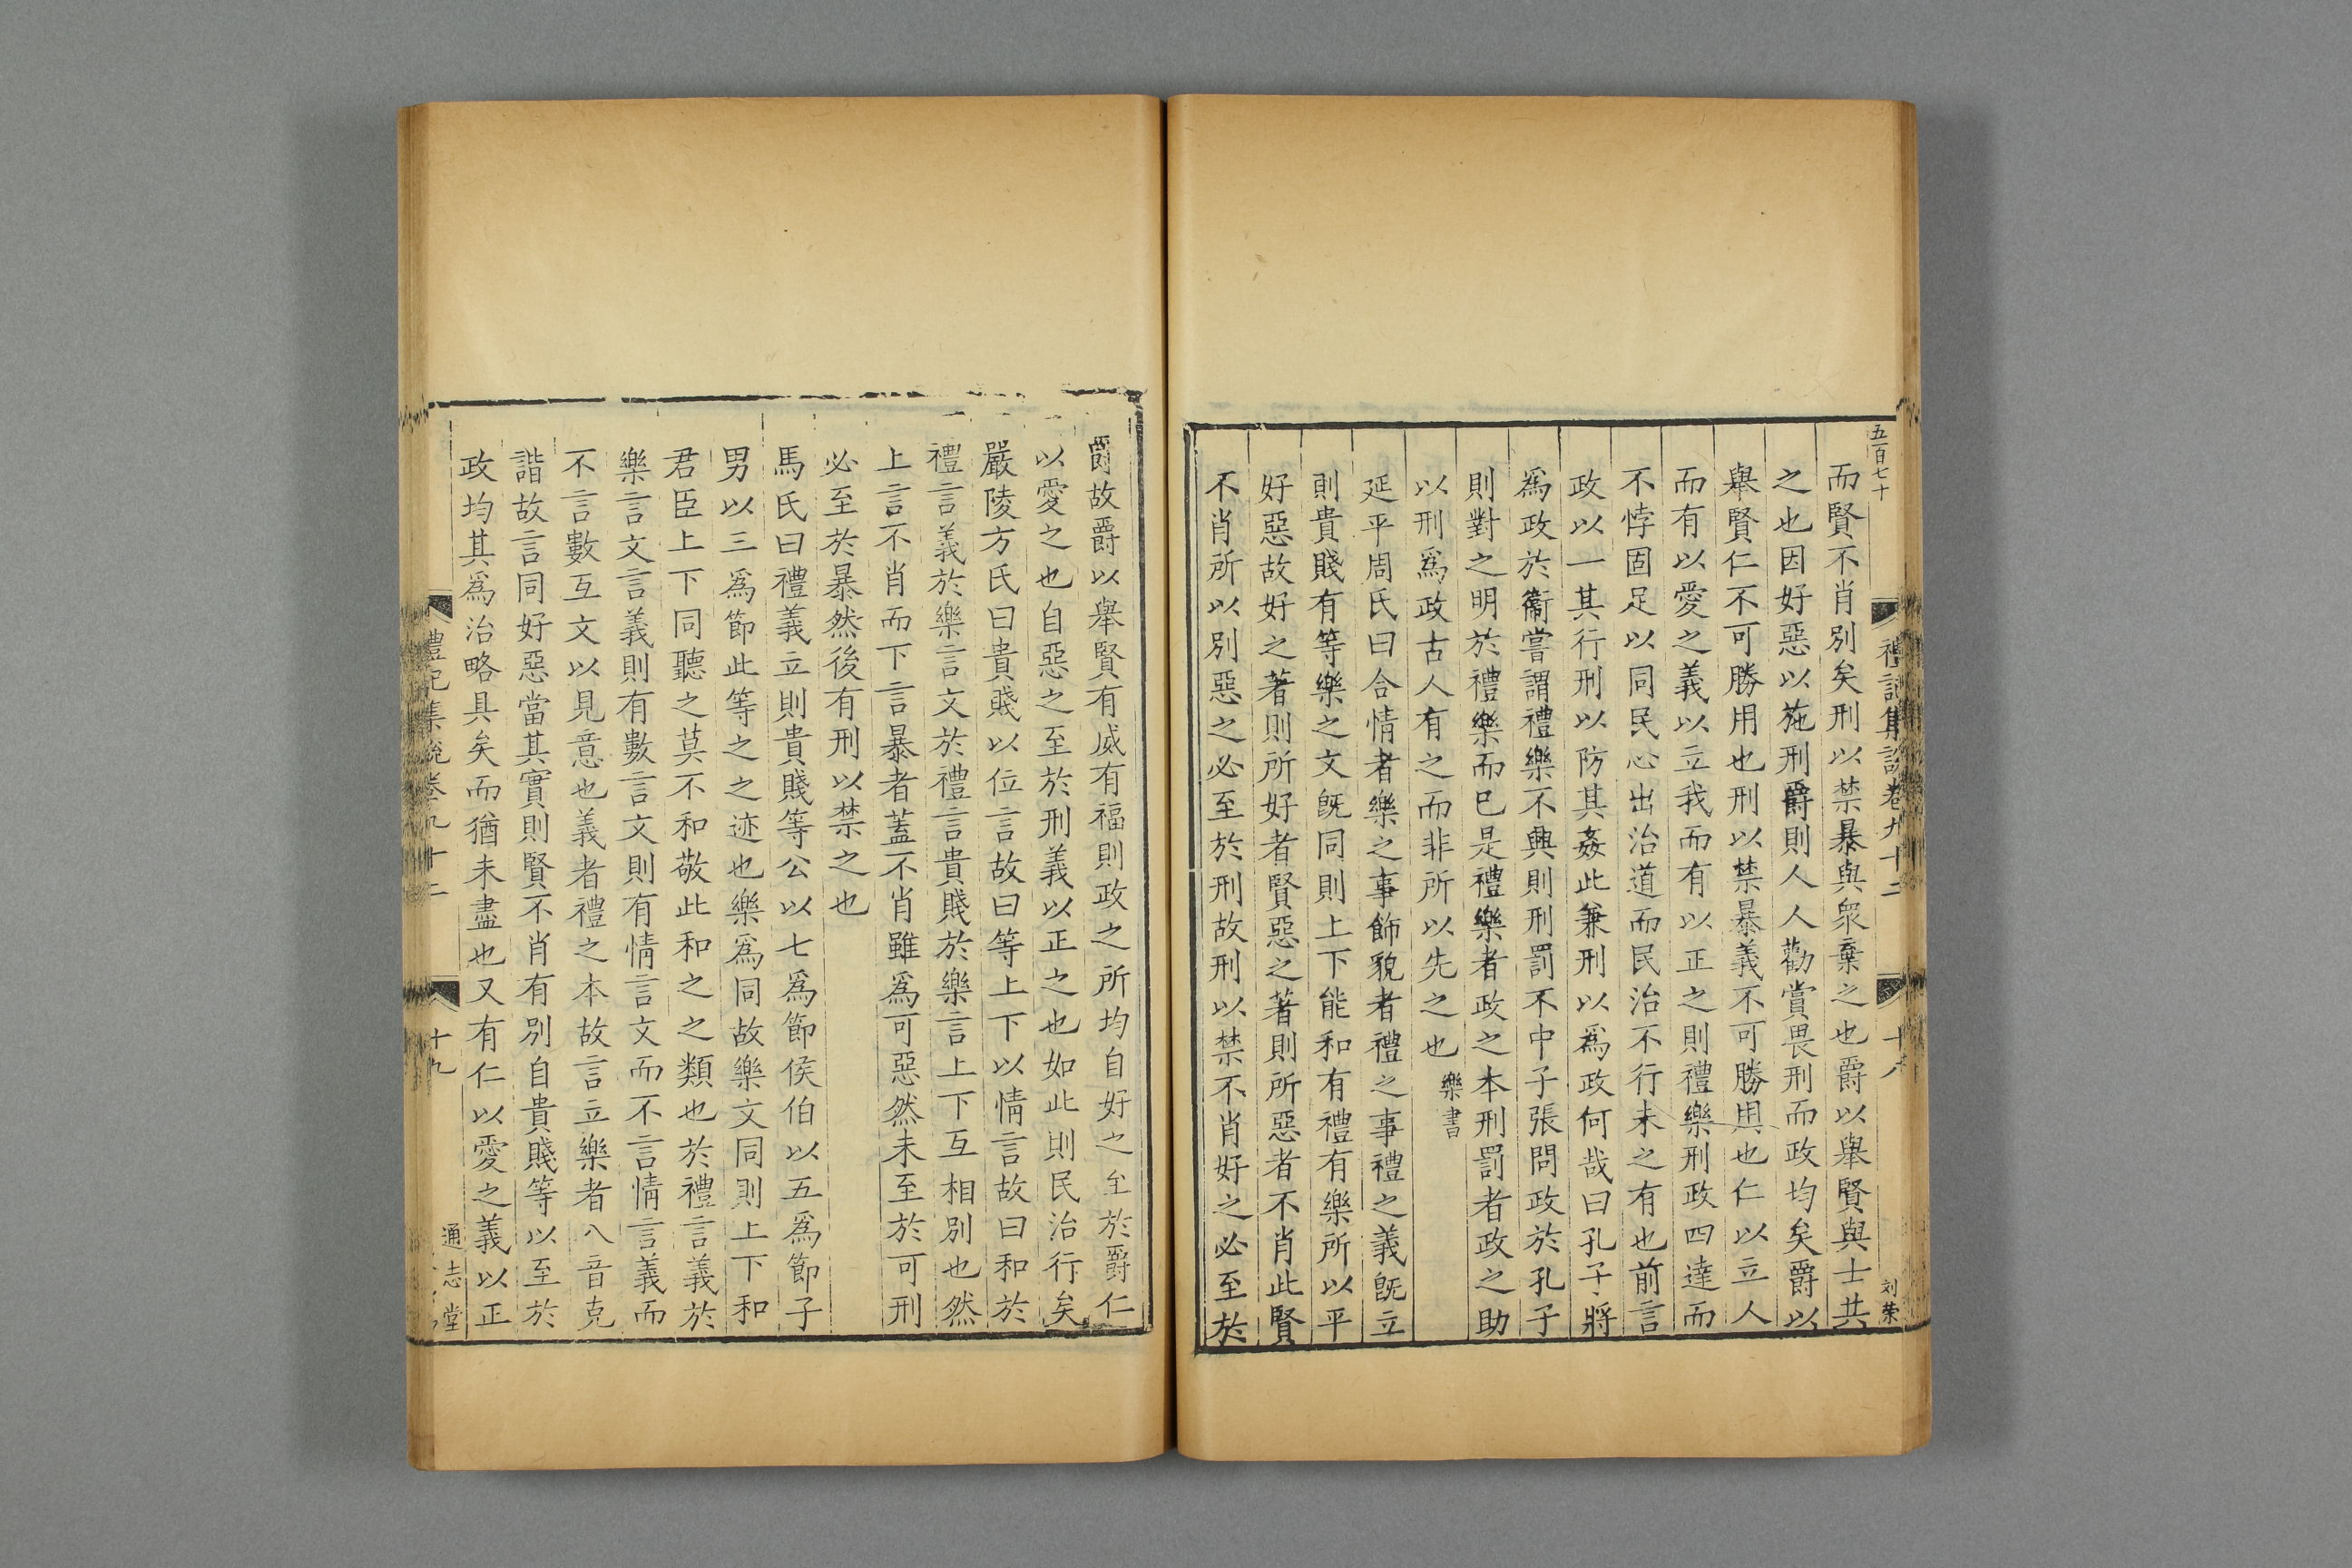 五百七十
禮記集說卷九十二
十八
刘荣
而賢不肖別矣刑以禁暴與衆棄之也爵以舉賢與士共
之也因好惡以施刑爵則人人勸賞畏刑而政均矣爵以
舉賢仁不可勝用也刑以禁暴義不可勝用也仁以立人
而有以愛之義以立我而有以正之則禮樂刑政四達而
不悖固足以同民心出治道而民治不行未之有也前言
政以一其行刑以防其姦此兼刑以爲政何哉曰孔子將
爲政於衞嘗謂禮樂不興則刑罰不中子張問政於孔子
則對之明於禮樂而已是禮樂者政之本刑罰者政之助
以刑爲政古人有之而非所以先之也樂書
延平周氏曰合情者樂之事飾貌者禮之事禮之義旣立
則貴賤有等樂之文旣同則上下能和有禮有樂所以平
好惡故好之著則所好者賢惡之著則所惡者不肖此賢
不肖所以別惡之必至於刑故刑以禁不肖好之必至於
爵故爵以舉賢有威有福則政之所均自好之至於爵仁
以愛之也自惡之至於刑義以正之也如此則民治行矣
嚴陵方氏曰貴賤以位言故曰等上下以情言故曰和於
禮言義於樂言文於禮言貴賤於樂言上下互相別也然
上言不肖而下言暴者蓋不肖雖爲可惡然未至於可刑
必至於暴然後有刑以禁之也
馬氏曰禮義立則貴賤等公以七爲節侯伯以五爲節子
男以三爲節此等之之迹也樂爲同故樂文同則上下和
君臣上下同聽之莫不和敬此和之之類也於禮言義於
樂言文言義則有數言文則有情言文而不言情言義而
不言數互文以見意也義者禮之本故言立樂者八音克
諧故言同好惡當其實則賢不肖有別自貴賤等以至於
政均其爲治略具矣而猶未盡也又有仁以愛之義以正
禮記集說卷九十二
十九
通志堂